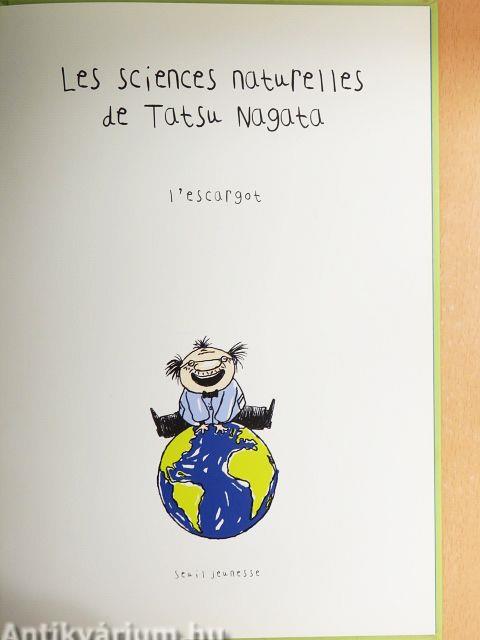 Les sciences naturelles
de Tatsu Nagata
l'escargot
seuil jeunesse
Antikvárium.hu